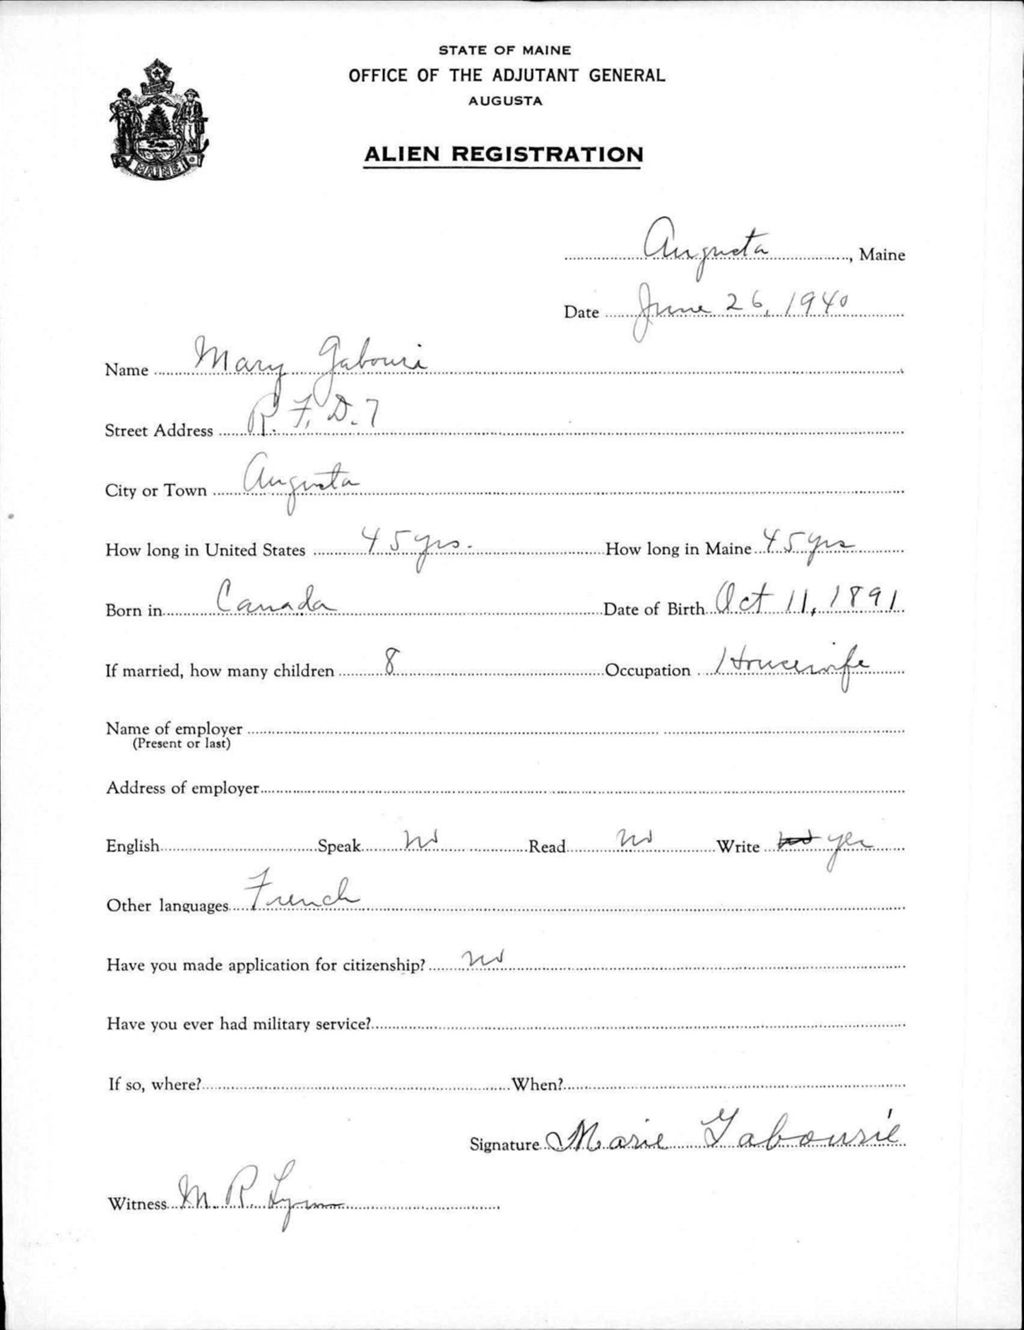 STATE OF MAINE
OFFICE OF THE ADJUTANT GENERAL
AUGUSTA
ALIEN REGISTRATION
MAINE
Augusta, Maine
Date June 26, 1940
Name Mary Gabouri
Street Address R.F.D. 7
City or Town Augusta
How long in United States 45 yrs. How long in Maine 45 yrs
Born in Canada Date of Birth Oct 11, 1891
If married, how many children 8 Occupation Housewife
Name of employer
(Present or last)
Address of employer
English Speak no Read no Write no yes
Other languages French
Have you made application for citizenship? no
Have you ever had military service?
If so, where? When?
Signature Marie Gabourié
Witness M. R.